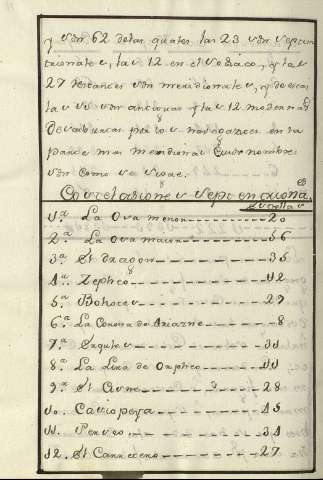 y son 62 delas quales las 23 son septen
trionales, las 12 en el Zodiaco, y las
27 restantes son meridionales, y de estas
las 15 son antiguas y las 12 modernas
Descubiertas por los navegantes en la
parte mas meridional Cuios nombres
son como se sigue.
Constelasiones septentriona.s
Estrellas
1.a La Osa menor 20
2.a La Osa maior 56
3.a El dragon 35
4.a Zepheo 42
5.a Bohotes 29
6.a La Corona de Ariadne 8
7.a
8.a La Lira de Orpheo
9.a El Cisne 28
10. Casiopeya 45
11. Perseo 34
12. El Carretero 27